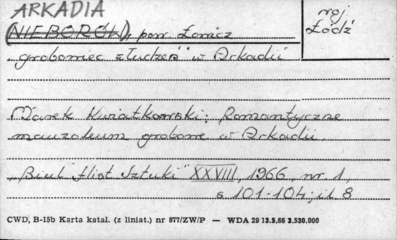 ARKADIA
(NIEBORÓW), pow. Łowicz
woj. Łódź
"grobowiec złudzeń" w Arkadii
Marek Kwiatkowski: Romantyczne
mauzoleum grobowe w Arkadii.
"Biul. Hist. Sztuki" XXVIII, 1966, nr. 1,
s. 101-104; il. 8
CWD, B-15b Karta katal. (z liniat.) nr 877/ZW/P — WDA 29 12.8.66 3.530.000